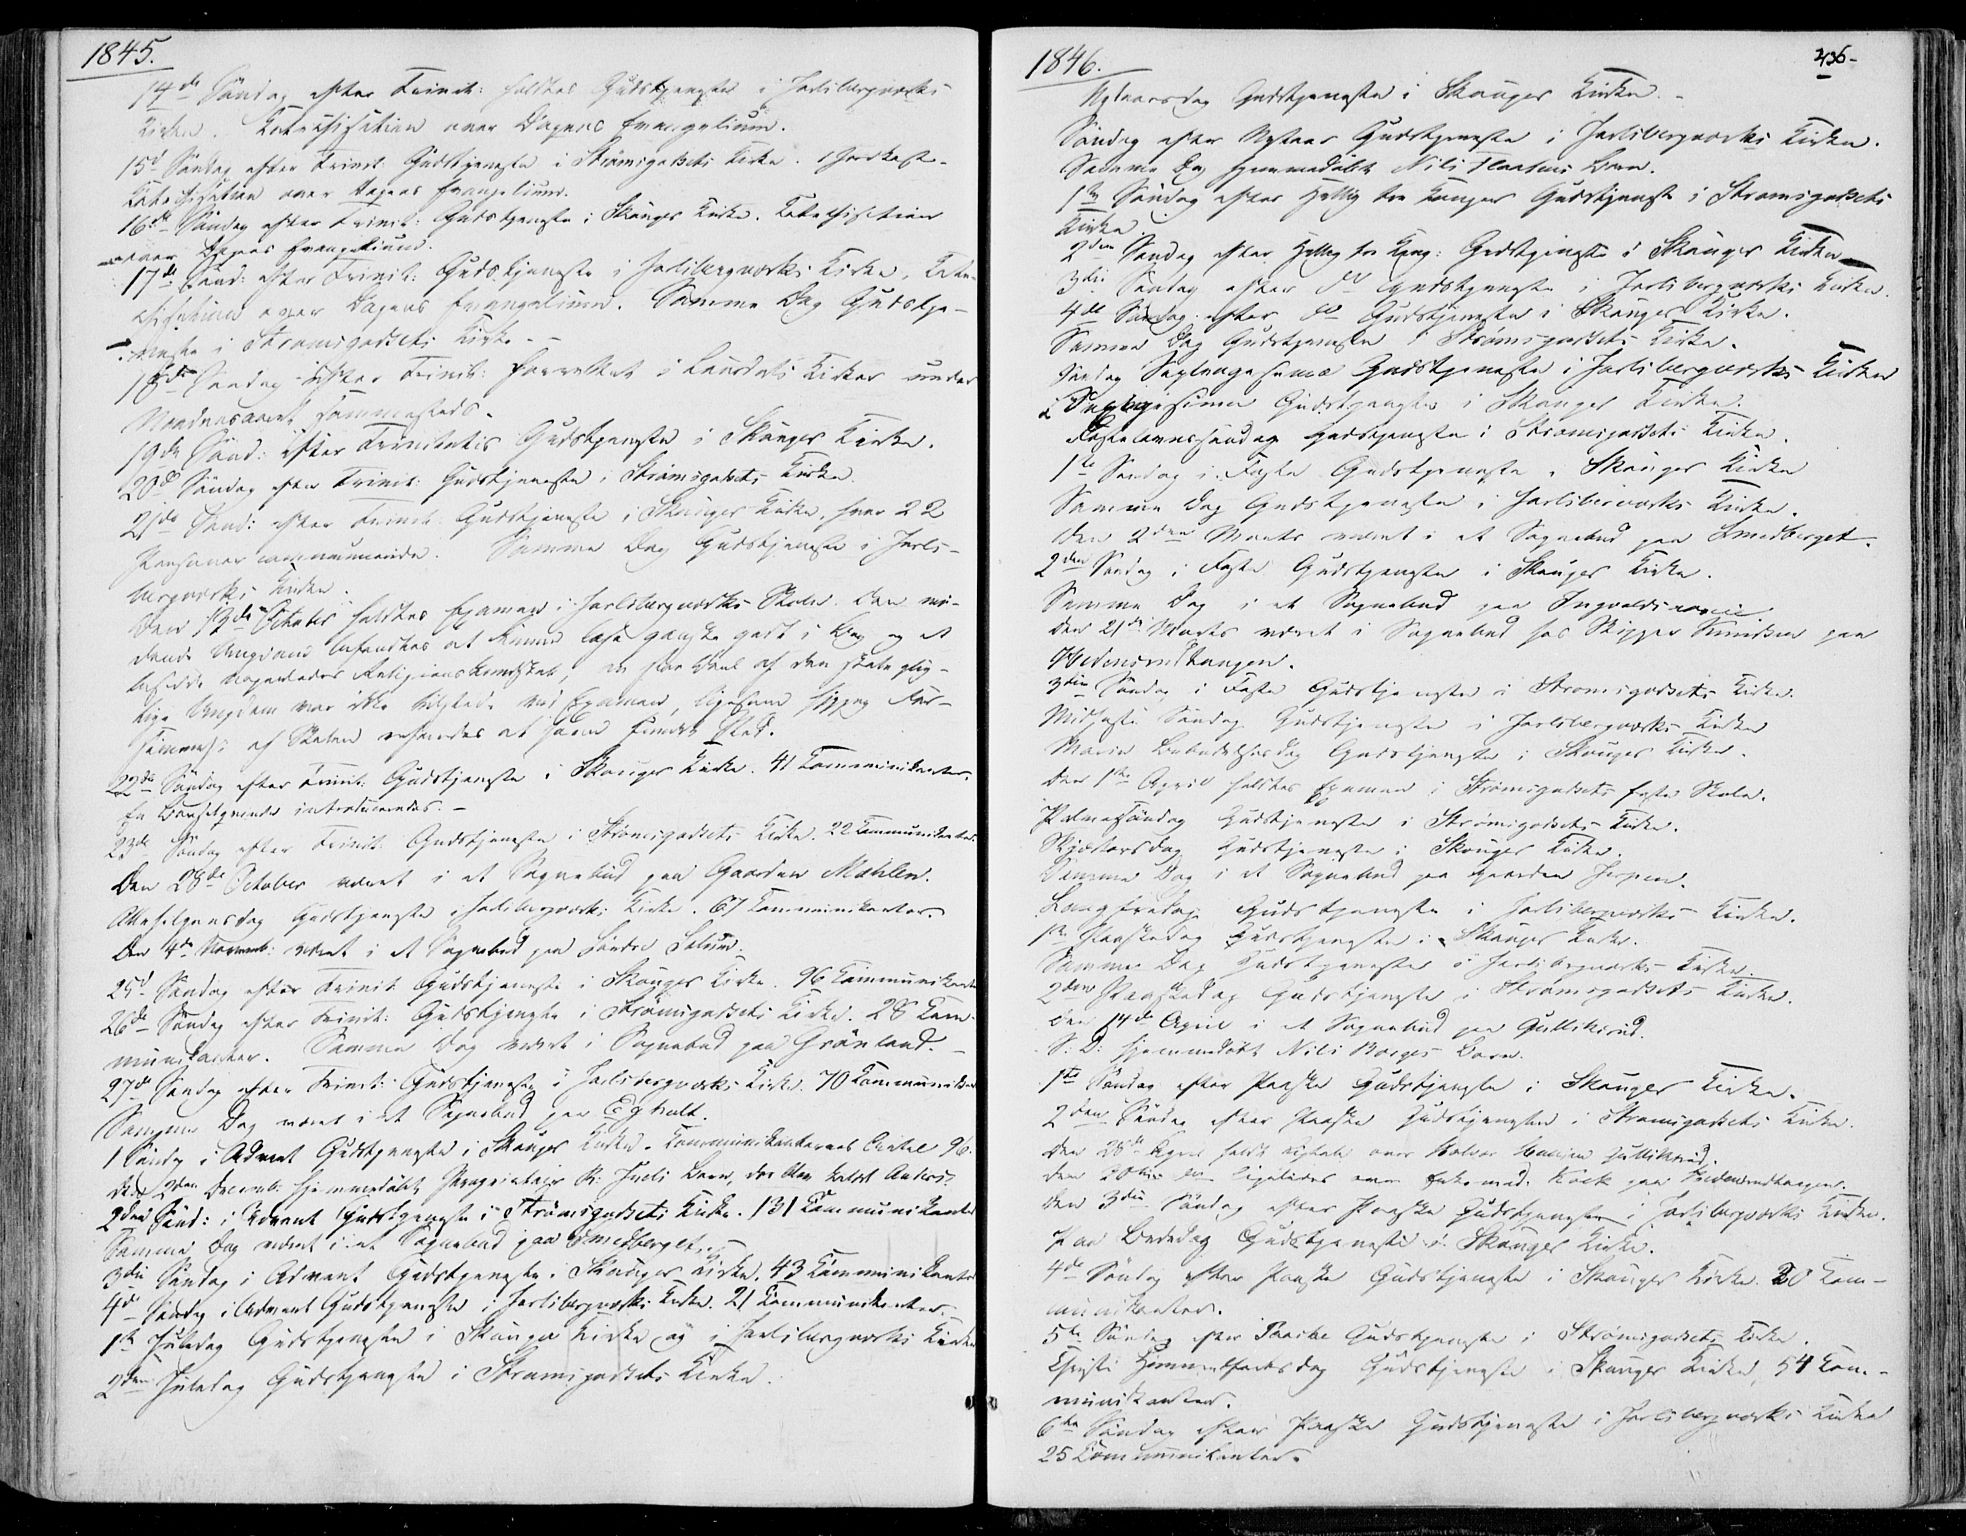 1845.
14de Søndag efter Trinit: holdtes Gudstjeneste i Jarlsbergværks
Kirke. Katechisation over Dagens Evangelium.
15d Søndag efter Trinit: Gudstjeneste i Strømsgodsets Kirke.
Katechisation over Dagens Evangelium.
16de Søndag efter Trinit: Gudstjeneste i Skouger Kirke. Katechisation
over Dagens Evangelium.
17de Sønd: efter Trinit: Gudstjeneste i Jarlsbergværks Kirke, Kate-
chisation over Dagens Evangelium. Samme Dag Gudstje-
neste i Strømsgodsets Kirke.
18de Søndag efter Trinit: forrettet i Laurdals Kirker under
sammesteds.
19de Sønd: efter Trinitatis Gudstjeneste i Skouger Kirke.
20de Søndag efter Trinit: Gudstjeneste i Strømsgodsets Kirke.
21de Sønd: efter Trinit: Gudstjeneste i Skouger Kirke, hvor 22
Personer communicerede. Samme Dag Gudstjeneste i Jarls-
bergværks Kirke.
Den 13de October holdtes Examen i Jarlsbergværks Skole. Den mø-
dende Ungdom befandtes at kunne læse ganske godt i Bog og at
besidde Religionskundskab, en stor Deel af den skolepligtige
Ungdom var ikke tilstede ved Examen, ligesom hyppig For-
sømmelse af Skolen erfaredes at have fundet Sted.
22de Søndag efter Trinit: Gudstjeneste i Skouger Kirke. 41 Communikanter.
En Barselqvinde introduceredes.
23de Søndag efter Trinit: Gudstjeneste i Strømsgodsets Kirke. 22 Communikanter.
Den 28de October været i et Sognebud paa Gaarden Mæhlen.
Allehelgensdag Gudstjeneste i Jarlsbergværks Kirke. 67 Communikanter.
Den 4de Novemb: været i et Sognebud paa Søndre Solum.
25d Søndag efter Trinit: Gudstjeneste i Skouger Kirke. 96 Communikanter
26de Søndag efter Trinit: Gudstjeneste i Strømsgodsets Kirke. 28 Com-
munikanter. Samme Dag været i Sognebud paa Grønland.
27de Søndag efter Trinit: Gudstjeneste i Jarlsbergværks Kirke. 70 Communikanter
Samme Dag været i et Sognebud paa Egholt.
1 Søndag i Advent Gudstjeneste i Skouger Kirke. Communikanternes Antal 96.
Den 2den Decemb: hjemmedøbt Proprietair Juels Barn,
2den Sønd: i Advent Gudstjeneste i Strømsgodsets Kirke. 131 Communikanter
Samme Dag været i et Sognebud paa Smedberget.
3die Søndag i Advent Gudstjeneste i Skouger Kirke. 43 Communikanter
4de Søndag i Advent Gudstjeneste i Jarlsbergværks Kirke. 21 Communikanter.
1ste Juledag Gudstjeneste i Skouger Kirke og i Jarlsbergværks Kirke
2den Juledag Gudstjeneste i Strømsgodsets Kirke.
1846.
Nytaarsdag Gudstjeneste i Skouger Kirke.
Søndag efter Nytaar Gudstjeneste i Jarlsbergværks Kirke.
Samme Dag hjemmedøbt Nils Barn.
1ste Søndag efter Hellig tre Konger Gudstjeneste i Strømsgodsets
Kirke.
2den Søndag efter Hellig tre Kong: Gudstjeneste i Skouger Kirke
3die Søndag efter do Gudstjeneste i Jarlsbergværks Kirke.
4de Søndag efter do Gudstjeneste i Skouger Kirke.
Samme Dag Gudstjeneste i Strømsgodsets Kirke.
Søndag Septuagesima Gudstjeneste i Jarlsbergværks Kirke
Gudstjeneste i Skouger Kirke.
Fastelavnssøndag Gudstjeneste i Strømsgodsets Kirke.
1ste Søndag i Faste Gudstjeneste i Skouger Kirke
Samme Dag Gudstjeneste i Jarlsbergværks Kirke.
Den 2den Marts været i et Sognebud paa Smedberget.
2den Søndag i Faste Gudstjeneste i Skouger Kirke.
Samme Dag i et Sognebud paa
Den 21de Marts været i Sognebud hos Skipper Knudsen paa
Hedensrudtangen.
3die Søndag i Faste Gudstjeneste i Strømsgodsets Kirke.
Midfaste Søndag Gudstjeneste i Jarlsbergværks Kirke
Marie Bebudelsesdag Gudstjeneste i Skouger Kirke.
Den 1ste April holdtes Examen i Strømsgodsets faste Skole.
Palmesøndag Gudstjeneste i Strømsgodsets Kirke.
Skjærtorsdag Gudstjeneste i Skouger Kirke.
Samme Dag i et Sognebud paa Gaarden
Langfredag Gudstjeneste i Jarlsbergværks Kirke.
1ste Paaskedag Gudstjeneste i Skouger Kirke.
Samme Dag Gudstjeneste i Jarlsbergværks Kirke.
2den Paaskedag Gudstjeneste i Strømsgodsets Kirke.
Den 14de April i et Sognebud paa Gulliksrud.
S: D: hjemmedøbt Nils Borges Barn.
1ste Søndag efter Paaske Gudstjeneste i Skouger Kirke.
2den Søndag efter Paaske Gudstjeneste i Strømsgodsets Kirke.
Den 28de April holdt Ligtale over Halvor Hansen Gulliksrud.
ligeledes over Enkemad. Kock paa Hedensrudtangen.
Den 3die Søndag efter Paaske Gudstjeneste i Jarlsbergværks Kirke.
Paa Bededag Gudstjeneste i Skouger Kirke.
4de Søndag efter Paaske Gudstjeneste i Skouger Kirke. 20 Com-
munikanter.
5te Søndag efter Paaske Gudstjeneste i Strømsgodsets Kirke.
Christi Himmelfartsdag Gudstjeneste i Skouger Kirke, 54 Com-
munikanter.
6te Søndag efter Paaske Gudstjeneste i Jarlsbergværks Kirke
25 Communikanter.